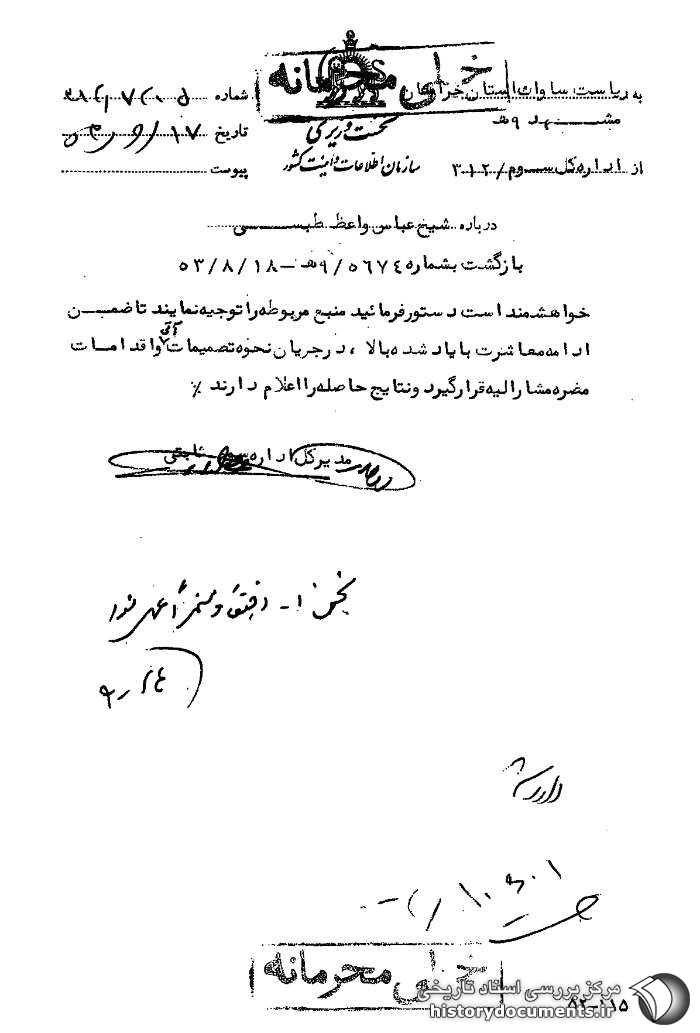 خیلی محرمانه
به ریاست ساواک استان خراسان
مشهد ۹ه
از اداره کل سوم/۳۱۲
نخست وزیری
سازمان اطلاعات و امنیت کشور
شماره
تاریخ
پیوست
درباره شیخ عباس واعظ طبسی
بازگشت بشماره ۵۶۷۴/۹ه – ۵۳/۸/۱۸
خواهشمند است دستور فرمائید منبع مربوطه را توجیه نمایند تا ضمن
ادامه معاشرت با یاد شده بالا ، در جریان نحوه تصمیمات آتی و اقدامات
مضره مشارالیه قرار گیرد و نتایج حاصله را اعلام دارند ٪
مدیر کل اداره سوم ثابتی
بخش ۱-
خیلی محرمانه
۸۲-۱۱۵
مرکز بررسی اسناد تاریخی
historydocuments.ir